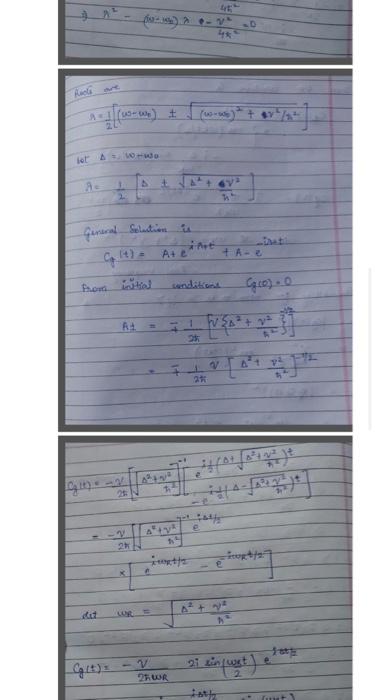 4ħ²
⇒ λ² - (ω-ω₀) λ - v²/4ħ² = 0
Roots are
λ = 1/2 [(ω-ω₀) ± √((ω-ω₀)² + v²/ħ²)]
let Δ = ω-ω₀
λ = 1/2 [Δ ± √(Δ² + v²/ħ²)]
General Solution is
Cg(t) = A+ e^(iλ+t) + A- e^(-iλ-t)
From initial conditions Cg(0) = 0
A± = ∓ 1/2ħ [v{Δ² + v²/ħ²}^(-1/2)]
= ∓ 1/2ħ v [Δ² + v²/ħ²]^(-1/2)
Cg(t) = -v/2ħ [√(Δ²+v²/ħ²)]^(-1) [e^(i1/2(Δ+√(Δ²+v²/ħ²))t)
- e^(i1/2(Δ-√(Δ²+v²/ħ²))t)]
= -v/2ħ [√(Δ²+v²/ħ²)]^(-1) e^(iΔt/2)
× [e^(iωRt/2) - e^(-iωRt/2)]
let ωR = √(Δ² + v²/ħ²)
Cg(t) = -v/2ħωR 2i sin(ωRt/2) e^(iΔt/2)